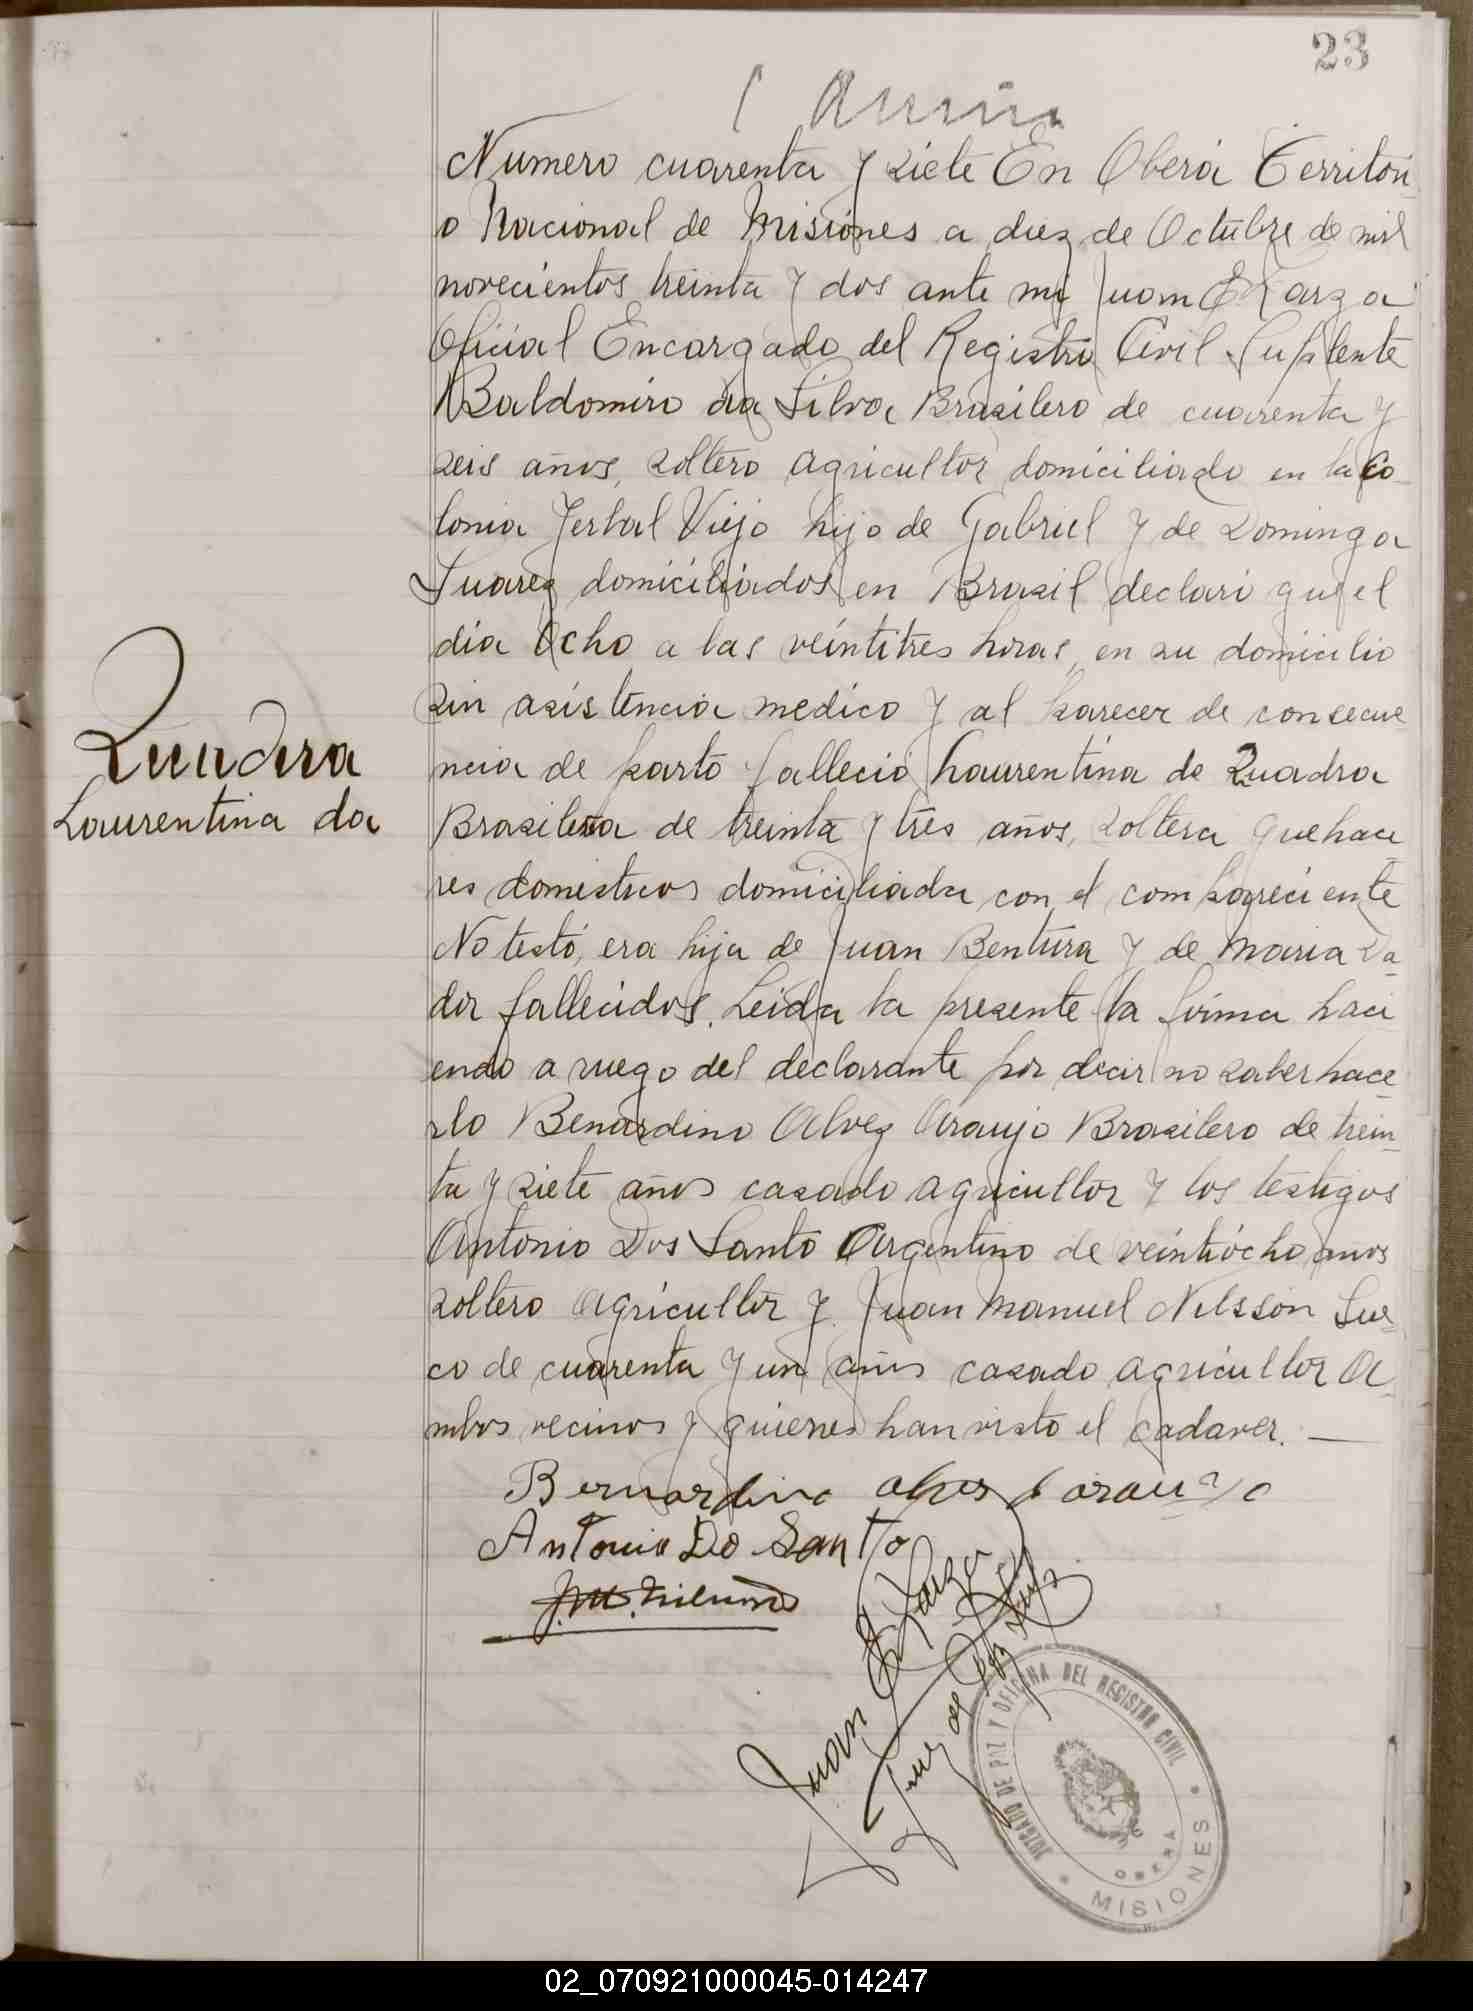 23
Numero cuarenta y siete En Oberá Territori
o Nacional de Misiónes a diez de Octubre de mil
novecientos treinta y dos ante mi Juan E Larza
Oficial Encargado del Registro Civil Suplente
Baldomiro da Silva Brasilero de cuarenta y
seis años, soltero agricultor domiciliado en la Co
lonia Yerbal Viejo hijo de Gabriel y de Dominga
Suarez domiciliados en Brasil declaró que el
dia Ocho a las veintitres horas, en su domicilio
sin asistencia medico y al parecer de consecue
ncia de parto falleció Laurentina de Quadra
Quadra
Laurentina da
Brasilera de treinta y tres años, soltera quehace
res domesticos domiciliada con el compareciente
No testó, era hija de Juan Bentura y de Maria
fallecidos. Leida la presente la firma haci
endo a ruego del declarante por decir no saber hace
rlo Benardino Alvez Araujo Brasilero de trein
ta y siete años casado agricultor y los testigos
Antonio Dos Santo Argentino de veintiócho anos
soltero agricultor y Juan Manuel Nilsson Sue
co de cuarenta y un años casado agricultor A
mbos vecinos y quienes han visto el cadaver.
Bernardino alves d araujo
Antonio Do Santo
J.M. Nilsson
Juan E Larza
Juez de Paz Sup
JUZGADO DE PAZ Y OFICINA DEL REGISTRO CIVIL
OBERA
MISIONES
02_070921000045-014247